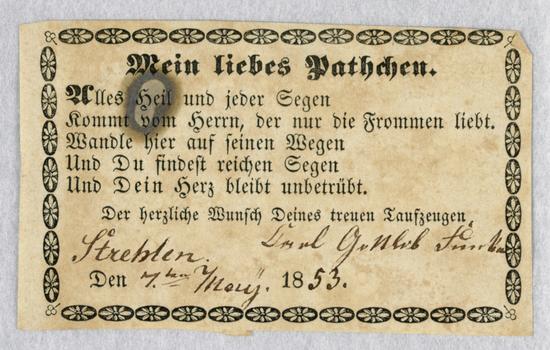 Mein liebes Pathchen.
Alles Heil und jeder Segen
Kommt vom Herrn, der nur die Frommen liebt.
Wandle hier auf seinen Wegen
Und Du findest reichen Segen
Und Dein Herz bleibt unbetrübt.
Der herzliche Wunsch Deines treuen Taufzeugen
Strehlen. Carl Gottlob
Den 7ten May. 1853.